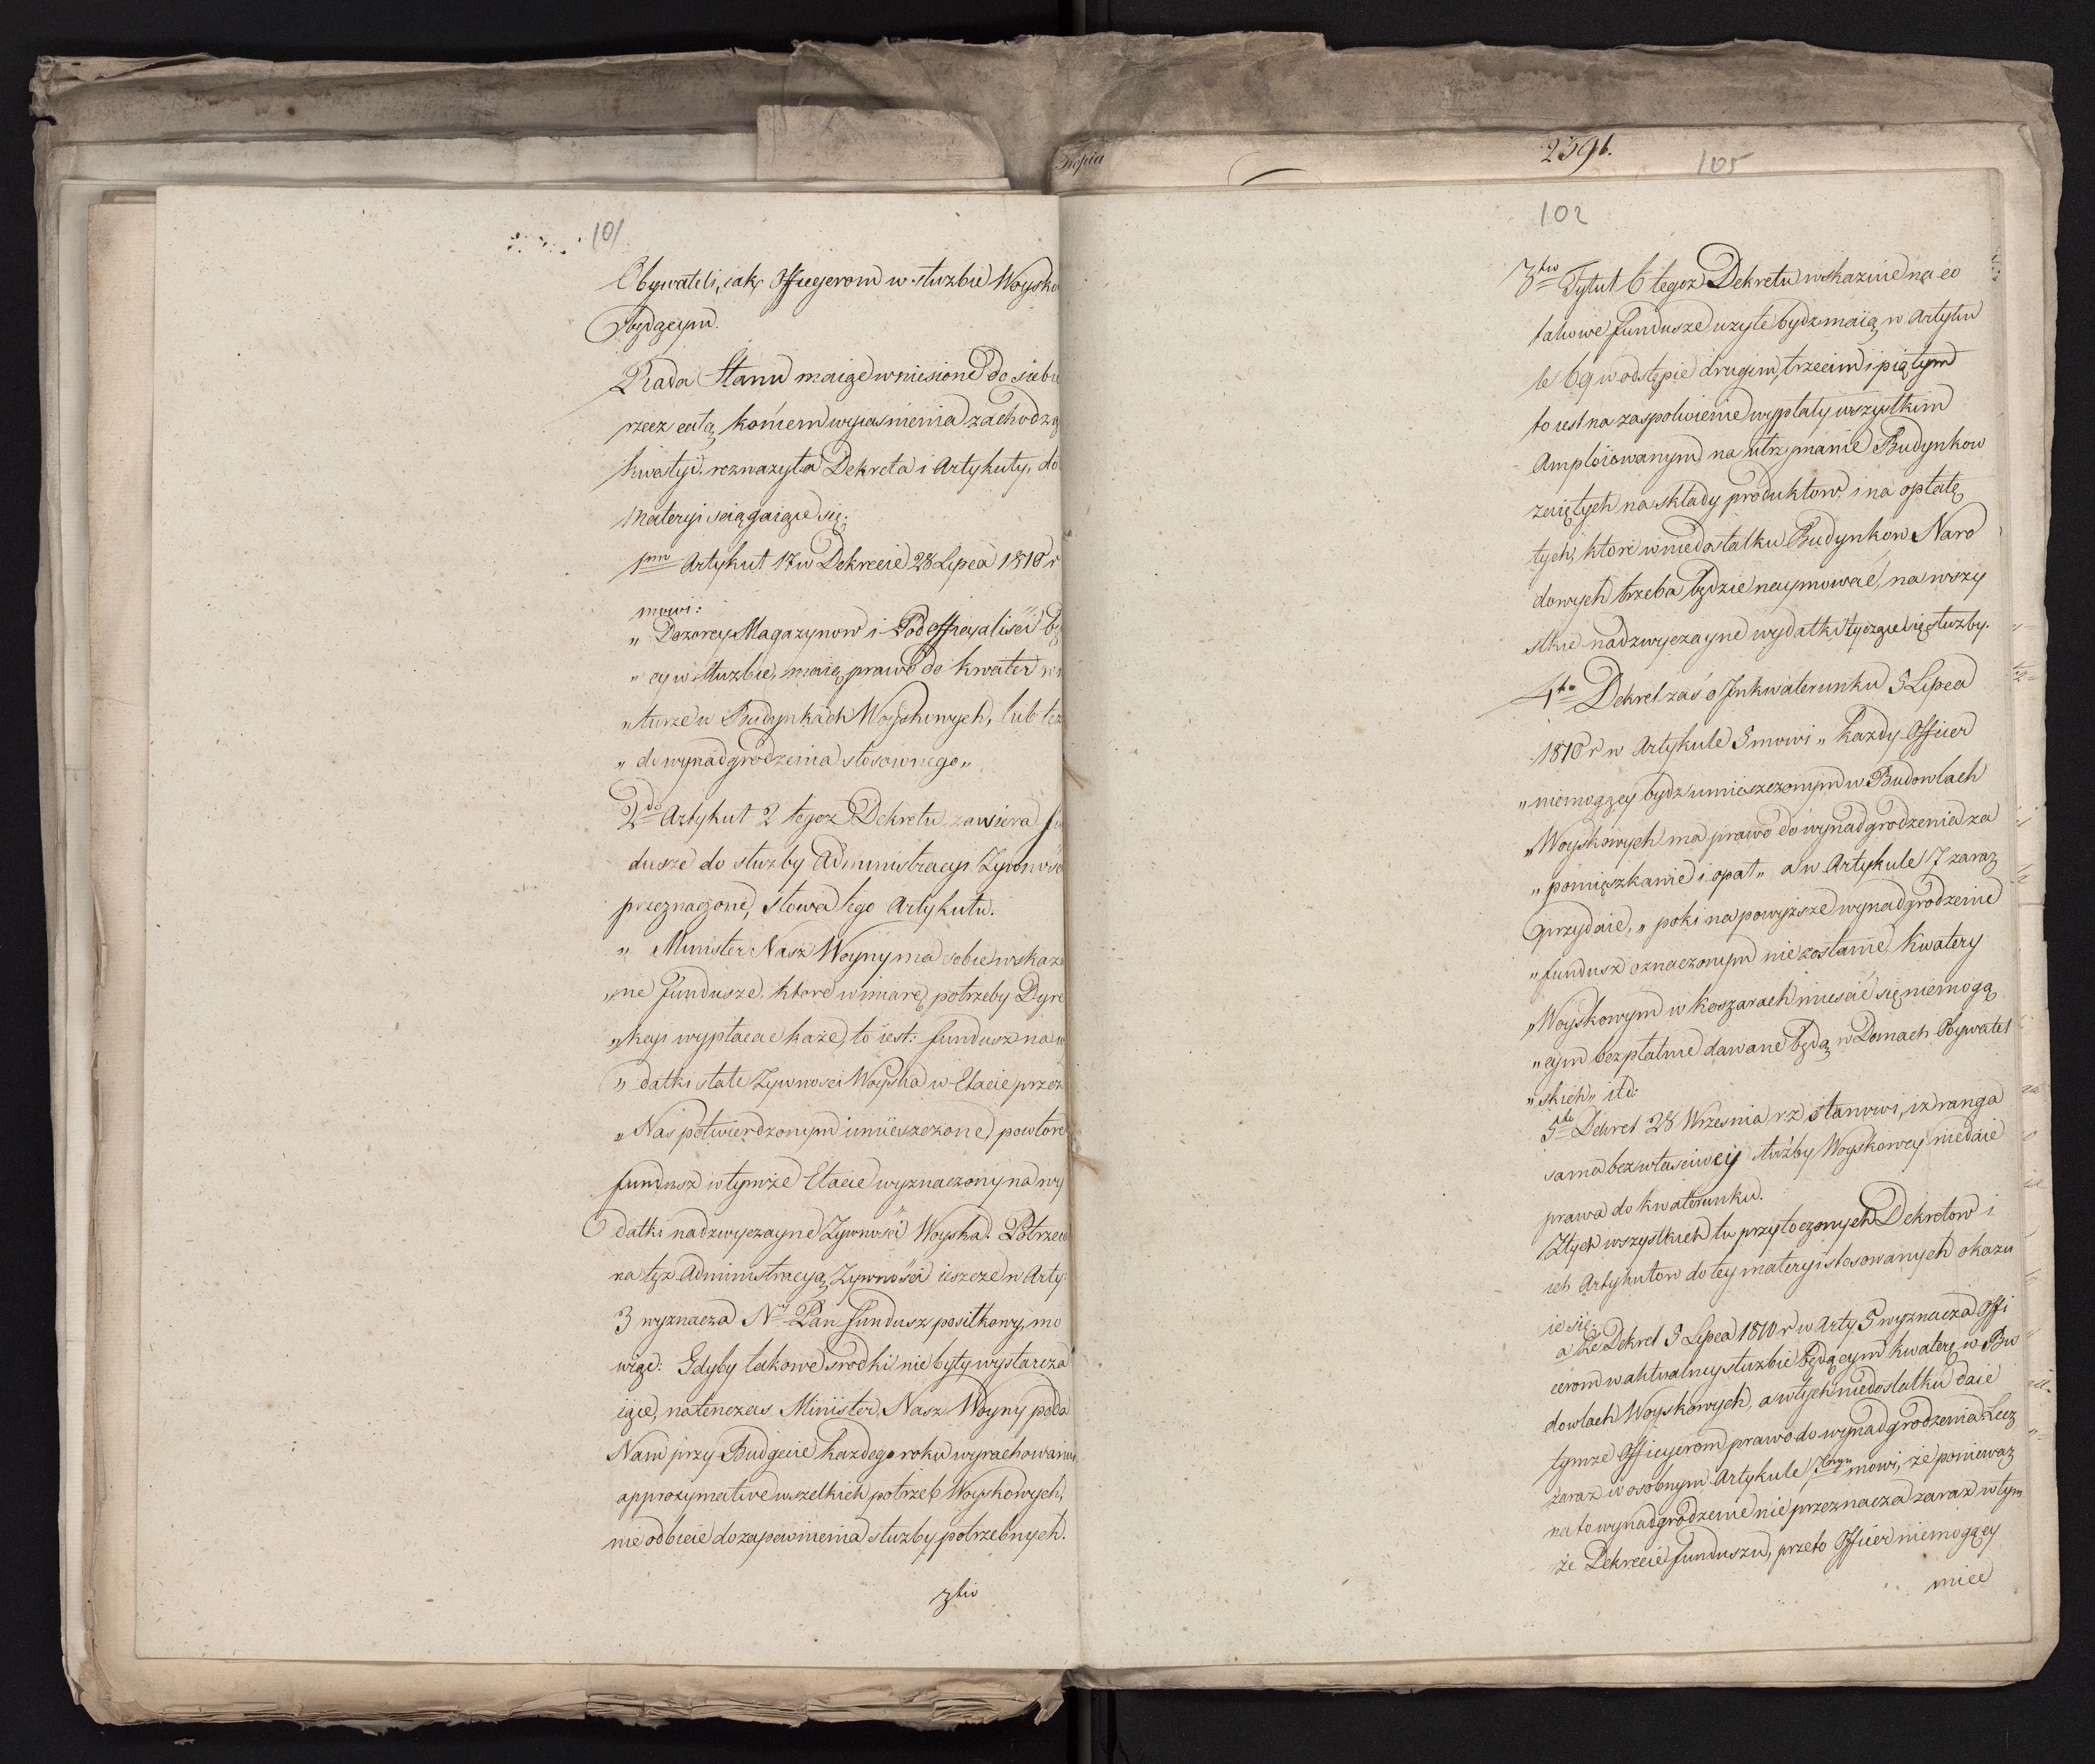 101
Obywateli, iak Officyerom w służbie Woysko
będącym.
Rada Stanu maiąc wniesioné do siebie
rzecz całą, końcem wyiasnienia zachodzą
kwestyi. rozważyła Dekreta i Artykuły, do
Materyi sciągaiące się.
1mo Artykuł 17 w Dekrecie 28 Lipca 1810 r
mowi:
„ Dozorcy Magazynow i Podofficyalisci bę
„ cy w służbie, maią prawo do kwater w na
„ turze w Budynkach Woyskowych, lub też
„ do wynadgrodzenia stosownego„
2do Artykuł 2 tegoz Dekretu zawiera fun
dusze do służby Administracyi Zywnośc
przeznaczoné, słowa tego Artykułu.
„ Minister Nasz Woyny ma sobie wskaza
„ne Fundusze, ktore w miarę potrzeby Dyre
„kcyi wypłacac każe, to iest: fundusz na wy
„ datki stałe Zywnosci Woyska w Etacie przez
„ Nas potwierdzonym umieszczone, powtore
fundusz w tymże Etacie wyznaczony na wy
datki nadzwyczayne Zywności Woyska. Potrzecie
na tęż Administracyą Zywności ieszcze w Arty:
3 wyznacza Nny Pan fundusz posiłkowy, mo
wiąc: Gdyby takowe srodki nie były wystarcza
iące, natenczas Minister Nasz Woyny poda
Nam przy Budgecie każdego roku wyrachowanie
approxymative wszelkich potrzeb Woyskowych,
nieodbicie do zapewnienia służby potrzebnych.
3tio
Kopia
239b.
105
102
3tio Tytuł 6 tegoz Dekretu wskazuie na co
takowe fundusze użyte bydz maią, w Artyku
le 69 w odstępie drugim, trzecim i piątym
to iest na zaspokoienie wypłaty wszystkim
Amploiowanym, na utrzymanie Budynkow
zaiętych na składy produktow, i na opłatę
tych, ktore w niedostatku Budynkow Naro
dowych trzeba będzie naymować, na wszy
stkie nadzwyczayne wydatki tyczące się służby.
4to Dekret zaś o Inkwaterunku 5 Lipca
1810 r w Artykule 5 mowi „ każdy Officer
„ niemogący bydz umieszczonym w Budowlach
„Woyskowych ma prawo do wynadgrodzenia za
„ pomięszkanie i opał„ a w Artykule 7 zaraz
przydaie, „ poki na powyższe wynadgrodzenie
„fundusz oznaczonym nie zostanie, Kwatery
„Woyskowym w koszarach miescić się niemogą
„cym bezpłatnie dawane będą w Domach Obywatel
„skich„ itd:
5to Dekret 28 Wrzesnia r z stanowi, iż ranga
sama bez własciwey służby Woyskowey niedaie
prawa do kwaterunku.
Z tych wszystkich tu przytoczonych Dekretow i
ich Artykułow do tey materyi stosowanych okazu
ie się.
a Że Dekret 5 Lipca 1810 r w Arty 5 wyznacza Offi
cerom w aktualney służbie będącym kwaterę w Bu
dowlach Woyskowych, a w tych niedostatku daie
tymze Officyerom prawo do wynadgrodzenia. Lecz
zaraz w osobnym Artykule 7mym mowi, że ponieważ
na to wynadgrodzenie nie przeznacza zaraz w tym
że Dekrecie funduszu, przeto Officer niemogący
miec